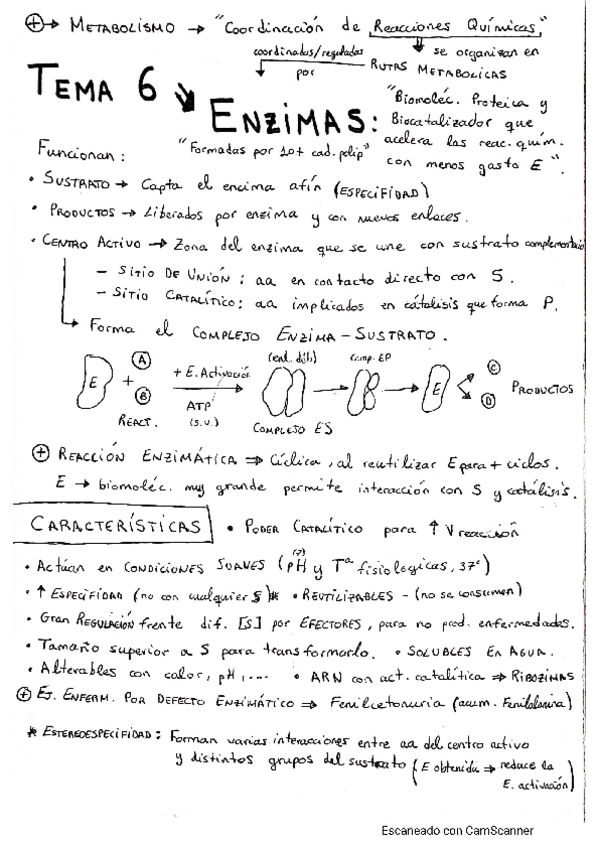 ⊕→ METABOLISMO → "Coordinación de Reacciones Químicas,"
coordinadas/reguladas
por
se organizan en
RUTAS METABOLICAS
TEMA 6
ENZIMAS:
"Biomoléc. Proteica y
Biocatalizador que
acelera las reac. quím.
con menos gasto E".
"Formadas por 1 o + cad. polip"
Funcionan:
• SUSTRATO → Capta el encima afín (ESPECIFIDAD)
• PRODUCTOS → Liberados por enzima y con nuevos enlaces.
• CENTRO ACTIVO → Zona del enzima que se une con sustrato complementario
- SITIO DE UNIÓN: aa en contacto directo con S.
- SITIO CATALÍTICO: aa implicados en catálisis que forma P.
Forma el COMPLEJO ENZIMA-SUSTRATO.
E + A B
REACT.
+ E. Activación
ATP
(s.v.)
(enl. déb)
COMPLEJO ES
Comp. EP
E
C
D
PRODUCTOS
⊕ REACCIÓN ENZIMÁTICA ⇒ Cíclica, al reutilizar E para + ciclos.
E → biomoléc. muy grande permite interacción con S y catálisis.
CARACTERÍSTICAS • PODER CATALÍTICO para ↑ V reacción
• Actúan en CONDICIONES SUAVES (pH (7) y Tª fisiologicas, 37º)
• ↑ ESPECIFIDAD (no con cualquier S)* • REUTILIZABLES - (no se consumen)
• Gran REGULACIÓN frente dif. [S] por EFECTORES, para no prod. enfermedades.
• Tamaño superior a S para transformarlo. • SOLUBLES EN AGUA.
• Alterables con calor, pH, .... • ARN con act. catalítica ⇒ RIBOZIMAS
⊕ EJ. ENFERM. POR DEFECTO ENZIMÁTICO ⇒ Fenilcetonuria (acum. Fenilalanina)
* ESTEREOESPECIFIDAD: Forman varias interacciones entre aa del centro activo
y distintos grupos del sustrato (E obtenida ⇒ reduce la
E. activación)
Escaneado con CamScanner